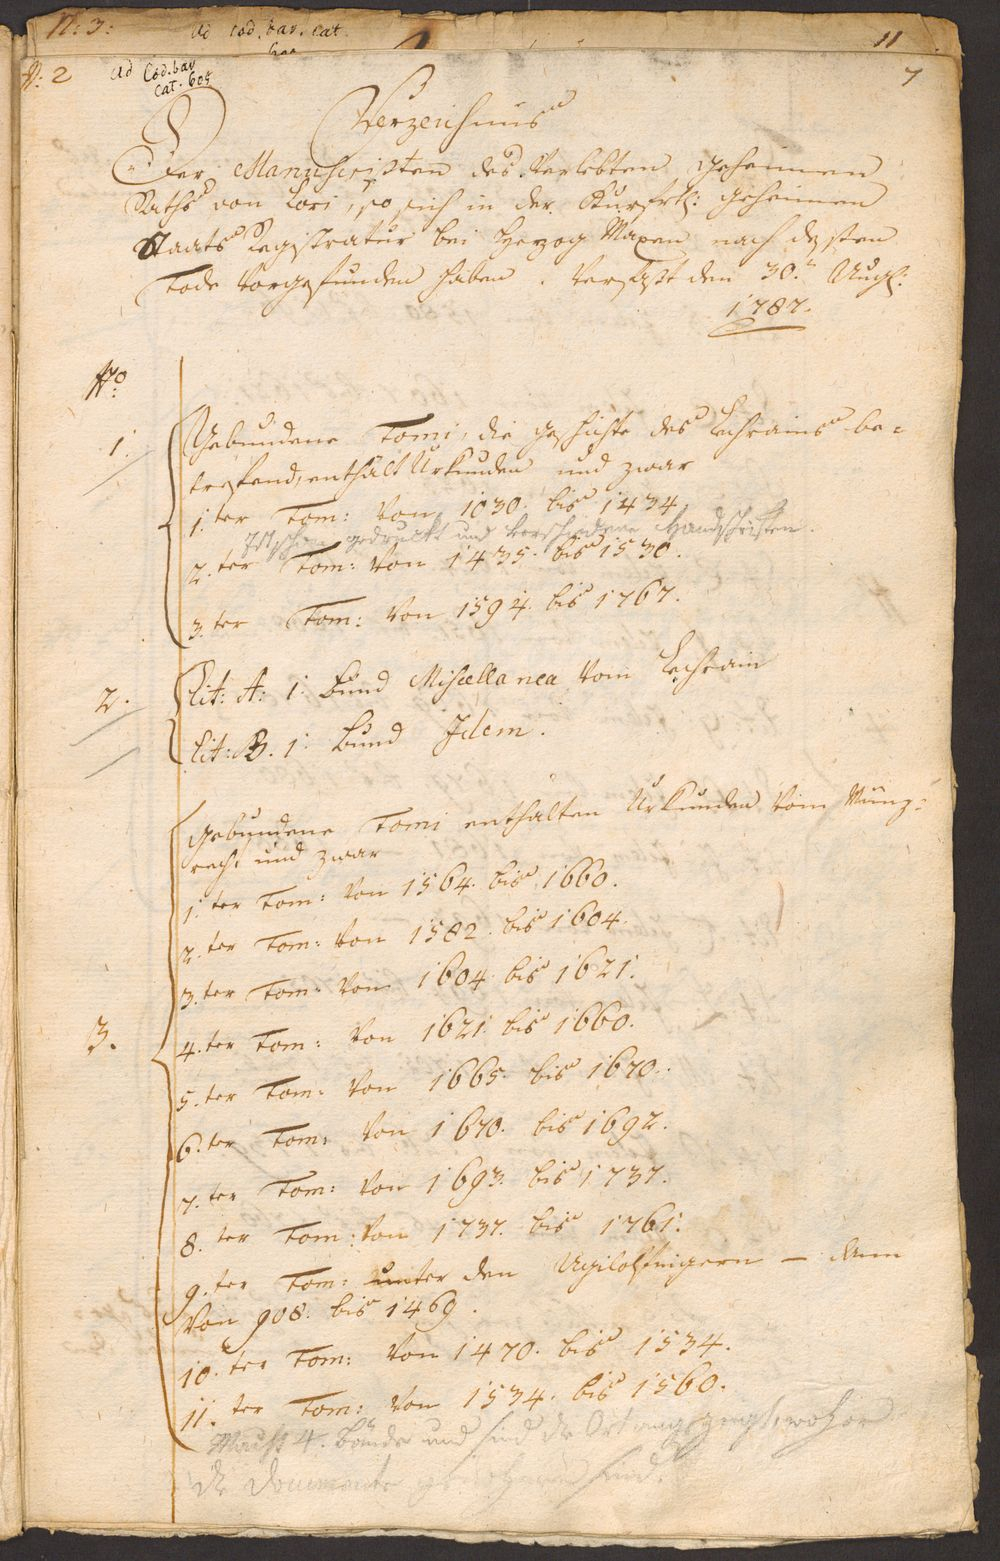 N: 3: Ad cod. bav. cat. 11
N: 2 Ad Cod. bav 7
Cat. 605
Verzeichnuis
Der Manuscripten des Verlebten geheimen
Raths von Lori, so sich in der Kurfrtl: geheimen
Staats Registratur bei Herzog Maxen nach dessten
Tode Vorgefunden haben. Verfasst den 30.n Augs:
1787.
No:
1. Gebundene Tomi, die geschichte des Lechrains be=
treffend, enthält Urkunden und zwar
1.ter Tom: Von 1030. bis 1434
Ist schon gedruckt und verschiedene Handschriften.
2.ter Tom: Von 1435. bis 1530.
3.ter Tom: Von 1594. bis 1767.
2. Lit: A: 1. Bund Miscellanea Vom Lechrain
Lit: B. 1. Bund Idem.
Gebundene Tomi enthalten Urkunden Vom Münz=
recht und zwar
1.ter Tom: Von 1564. bis 1660.
2.ter Tom: Von 1582. bis 1604.
3.ter Tom: Von 1604. bis 1621.
3. 4.ter Tom: Von 1621. bis 1660.
5.ter Tom: Von 1665. bis 1670.
6.ter Tom: Von 1670. bis 1692.
7.ter Tom: Von 1693. bis 1737.
8.ter Tom: Von 1737. bis 1761.
9.ter Tom: unter den Agilolfingern — dann
Von 908. bis 1469.
10.ter Tom: Von 1470. bis 1534.
11.ter Tom: Von 1534. bis 1560.
Macht 4. Bände und sind die Ort angezeigt, woher
die Documente genohmen sind.